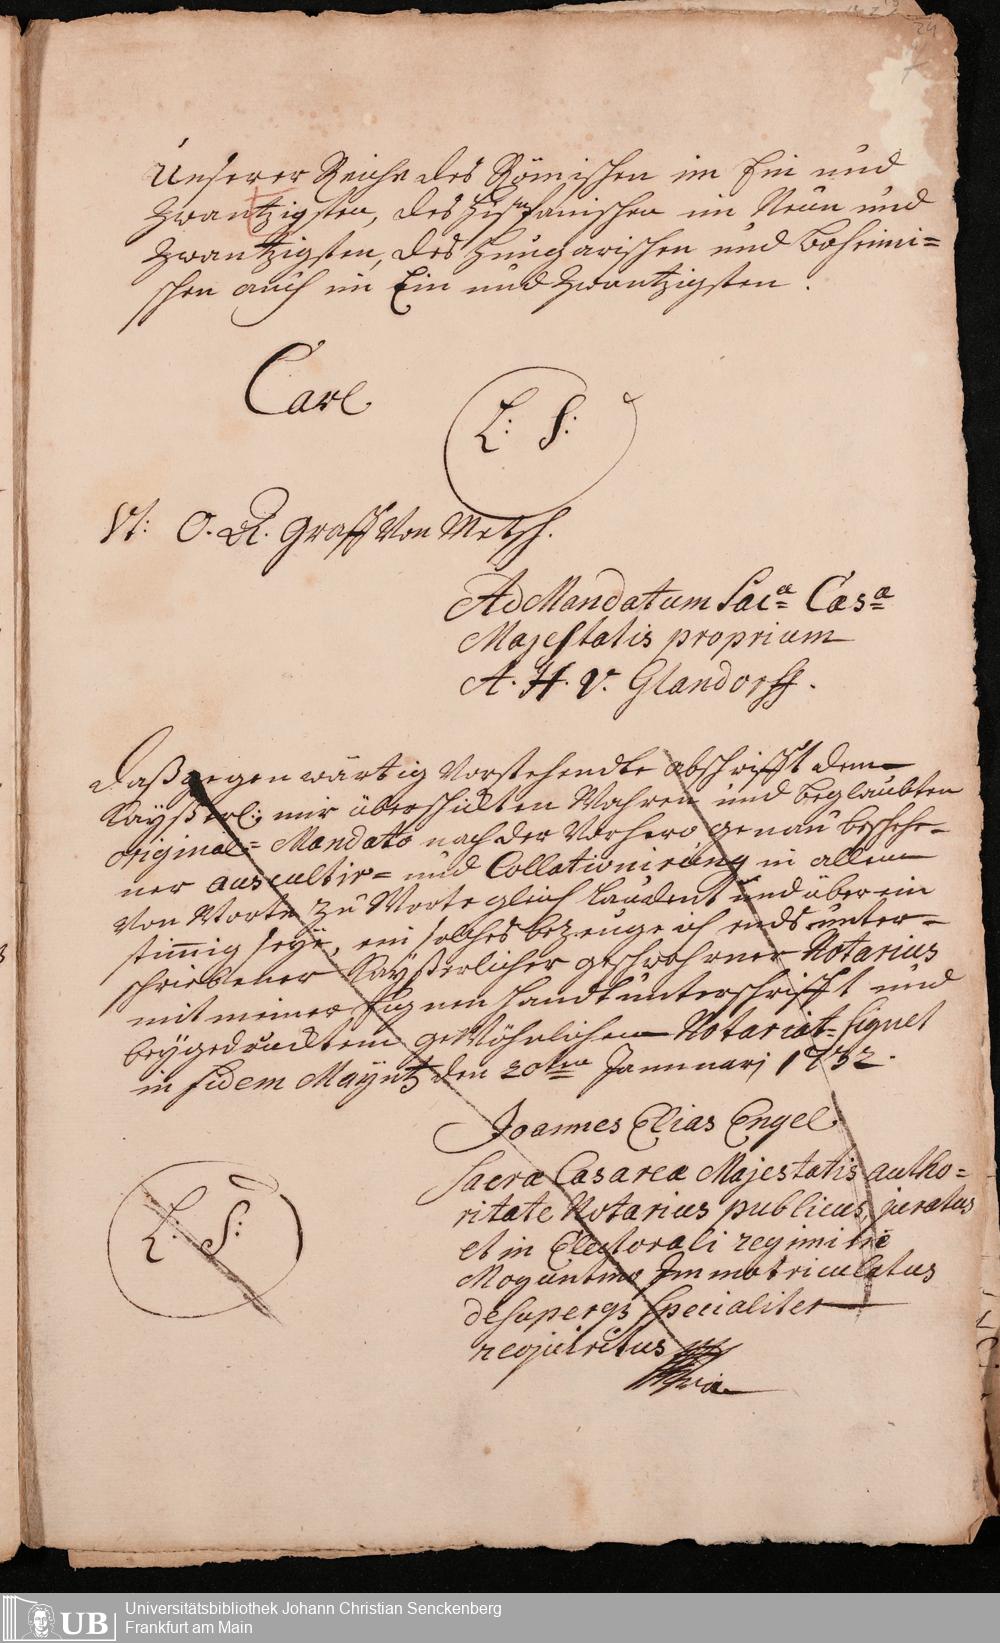 24
Unserer Reiche des Römischen im Ein und
zwantzigsten, des Hispanischen im Neün und
zwantzigsten, des Hungarischen und Boheimi=
schen auch im Ein und zwantzigsten.
Carl
L: S:
Vt: J. A. Graff von Metsch.
Ad Mandatum Sac.ª Cæs.ª
Majestatis proprium
A. H. v. Glandorff.
Daß gegenwärtig Vorstehendte abschrifft dem
Kayßerl: mir überschickten Wahren und beglaubten
original= Mandato nach der Vorhero genau beschehe=
ner auscultir= und Collationirung in allem
Von Worte zu Worte gleich laudent und überein
stim̄ig seye, ein solches bezeuge ich ends unter=
schriebener Kayßerlicher geschwohrner Notarius
mit meiner Eignen Handtunterschrifft und
beygedrucktem gewöhnlichem Notariat=Signet
in fidem Mayntz den 20ten Januarj 1732.
Joannes Elias Engel
Sacræ Casareæ Majestatis autho=
ritate Notarius publicus, juratus
et in Electorali regimine
Moguntino Immatriculatus
desuperq3 specialiter
requisitus
L: S:
UB
Universitätsbibliothek Johann Christian Senckenberg
Frankfurt am Main